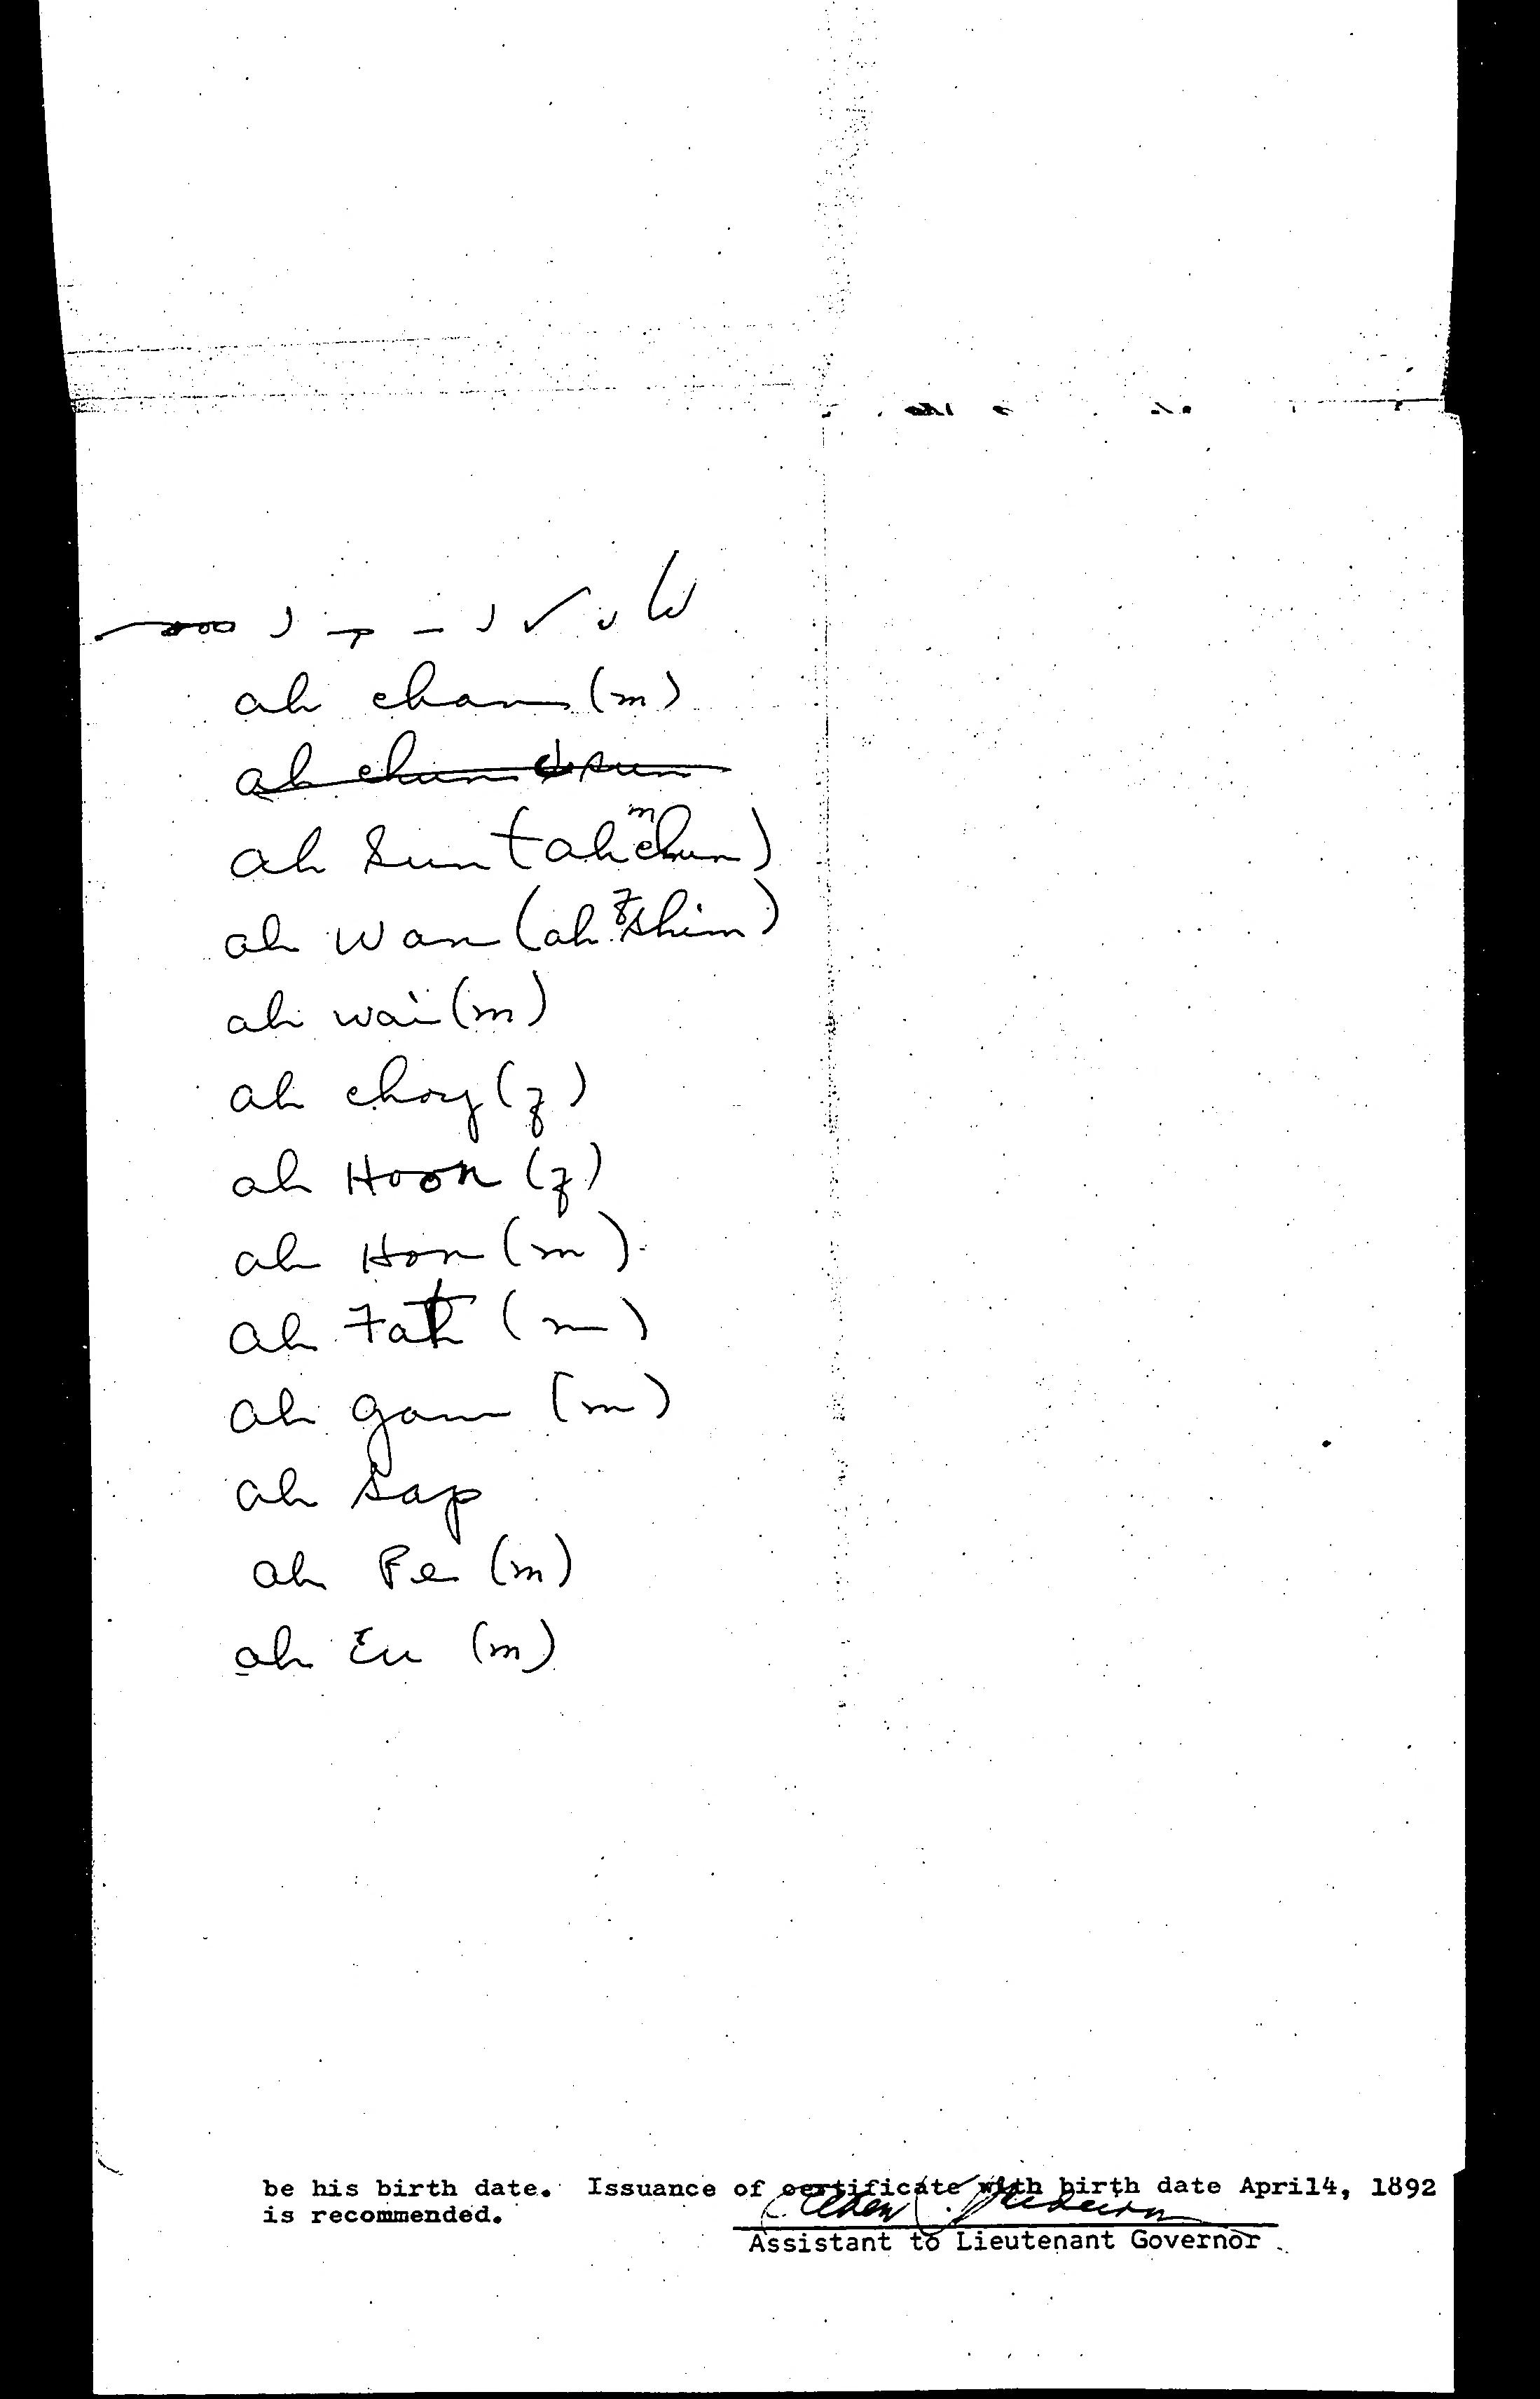 ah chan (m)
ah chun
ah Sun (ah chun) m
ah Wan (ah shim) f
ah wai (m)
ah choy (f)
ah Hoon (f)
ah Hon (m)
ah Fat (m)
ah gam (m)
ah Sap
ah Pe (m)
ah Eu (m)
be his birth date. Issuance of certificate with birth date April4, 1892
is recommended.
Assistant to Lieutenant Governor